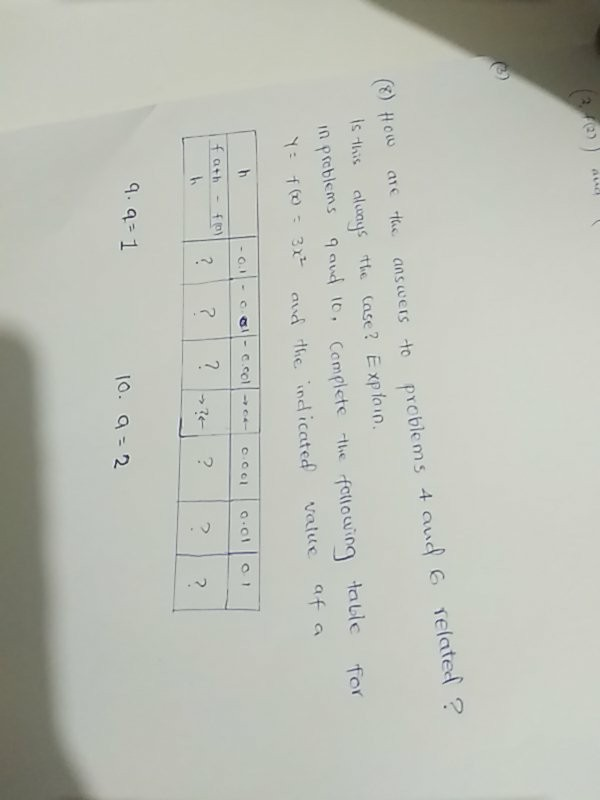 (2, f(2)) and (
(3)
(8) How are the answers to problems 4 and 6 related?
Is this always the case? Explain.
in problems 9 and 10, Complete the following table for
y = f(x) = 3x² and the indicated value of a
h -0.1 -0.01 -0.001 →0← 0.001 0.01 0.1
f a+h - f(a)
h ? ? ? →?← ? ? ?
9. a=1 10. a=2